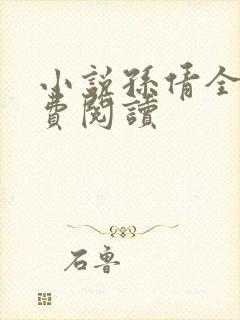 小說孫倩全
費閱讀
石魯